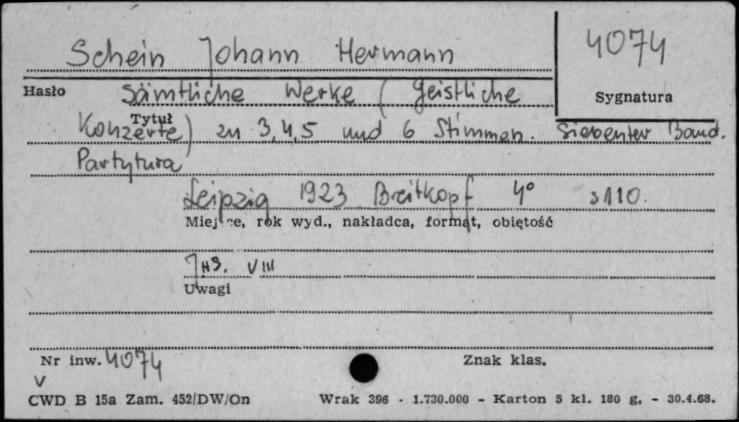 Schein Johann Hermann
4074
Hasło
Sygnatura
Sämtliche Werke (Geistliche
Tytuł
Konzerte) zu 3,4,5 und 6 Stimmen. Siebenter Band.
Partytura
Leipzig 1923 Breitkopf 4° s 110.
Miejsce, rok wyd., nakładca, format, objętość
VIII
Uwagi
Nr inw. 4074
Znak klas.
V
CWD B 15a Zam. 452/DW/On Wrak 396 - 1.730.000 - Karton 5 kl. 180 g. - 30.4.68.